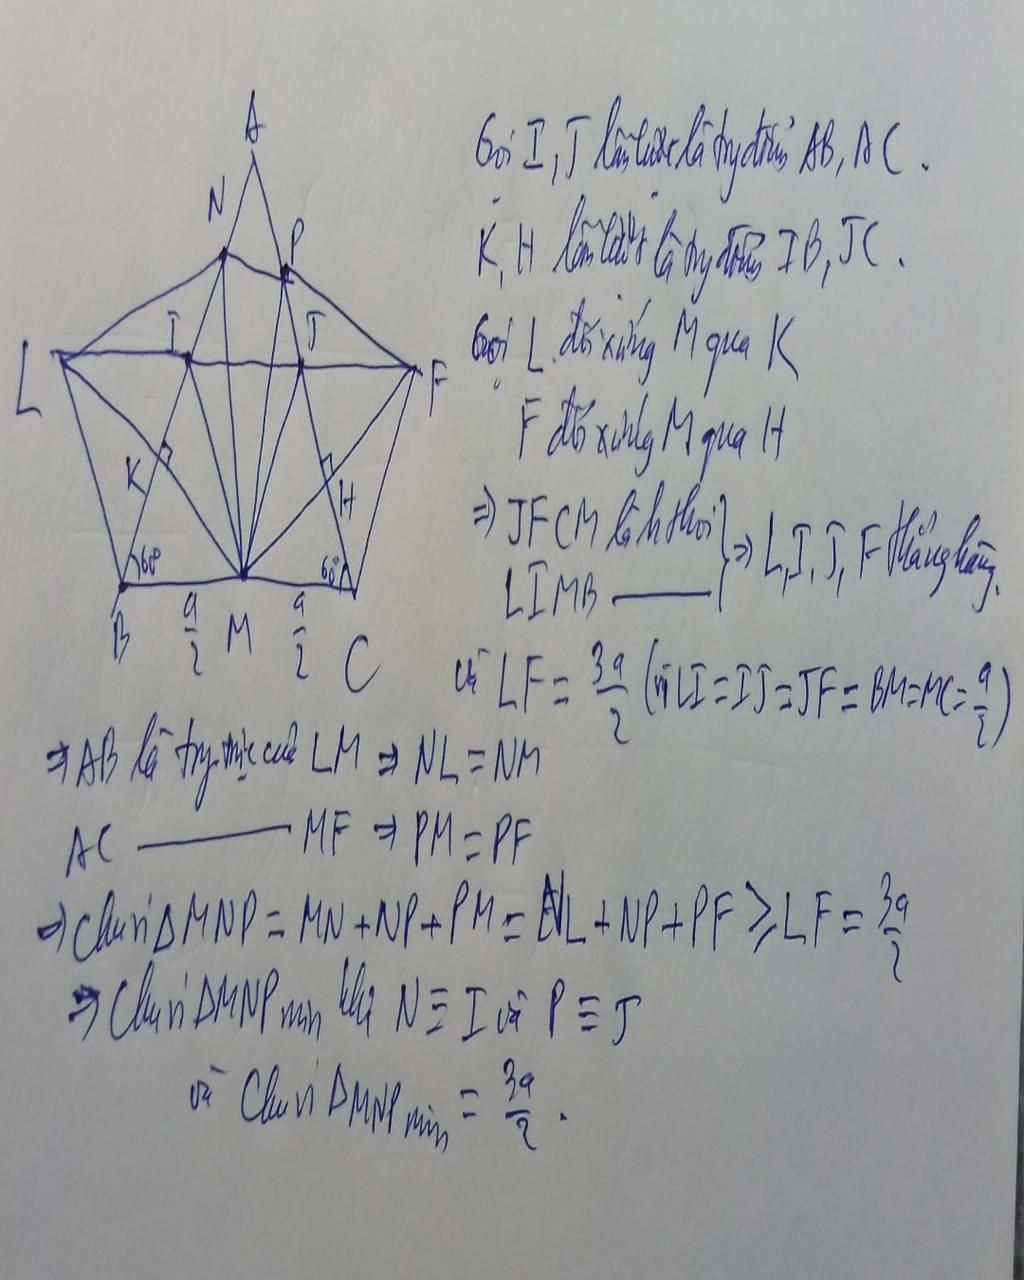 A
N
P
I
J
L
F
K
H
60°
60°
B
a/2
M
a/2
C
Gọi I, J lần lượt là trg điểm AB, AC.
K, H lần lượt là trg điểm IB, JC.
Gọi L đối xứng M qua K
F đối xứng M qua H
⇒ JFCM là h thoi
LIMB ———
} ⇒ L, I, J, F thẳng hàng.
và LF = 3a/2 (vì LI = IJ = JF = BM = MC = a/2)
⇒ AB là trg trực của LM ⇒ NL = NM
AC ——— MF ⇒ PM = PF
⇒ Chu vi ΔMNP = MN + NP + PM = NL + NP + PF ≥ LF = 3a/2
⇒ Chu vi ΔMNP min khi N ≡ I và P ≡ J
và Chu vi ΔMNP min = 3a/2.